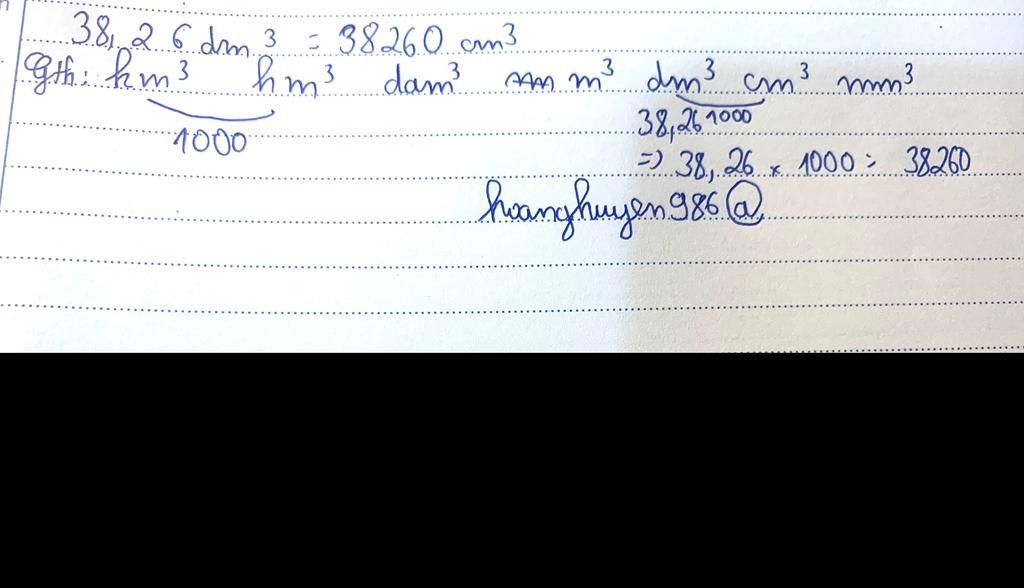 38,26 dm³ = 38260 cm³
Gth: km³ hm³ dam³ m³ dm³ cm³ mm³
1000 38,26 1000
=> 38,26 x 1000 = 38260
hoanghuyen986@